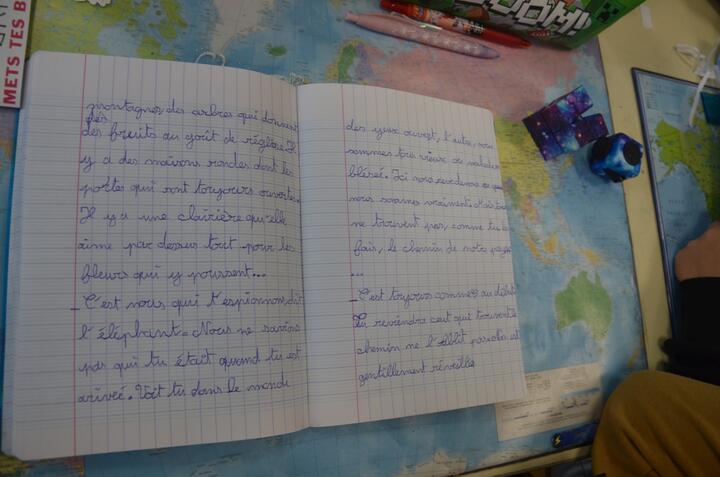 METS TES B
OOM!
montagnes, des arbres qui donnent
des
des fruits au goût de réglisse. Il
y a des maisons rondes dont les
portes qui sont toujours ouvertes.
Il y a une clairière qu'elle
aime par dessus tout pour les
fleurs qui y poussent...
_ C'est nous qui t'espionnons, dit
l'éléphant. Nous ne savions
pas qui tu était quand tu est
arivée. Voit tu dans le monde
des yeux ouvert, l'autre, nous
sommes tous vieux ou malades
blessé. Ici nous
nous sommes vraiments. Mais tous
ne trouvent pas, comme tu l'a
fais, le chemin de notre pays
...
_ C'est toujours comme au début
Tu reviendra ceut qui trouvent le
chemin ne l'oublit pas elle est
gentillement réveillée